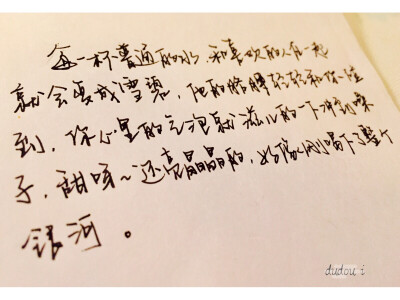 每一杯普通的水,和喜欢的人在一起
就会变成雪碧,他的胳膊轻轻和你一撞
到,你心里的气泡就滋儿的一下冲到嗓
子,甜呀~还亮晶晶的,好像刚喝下了整个
银河。
dudou i